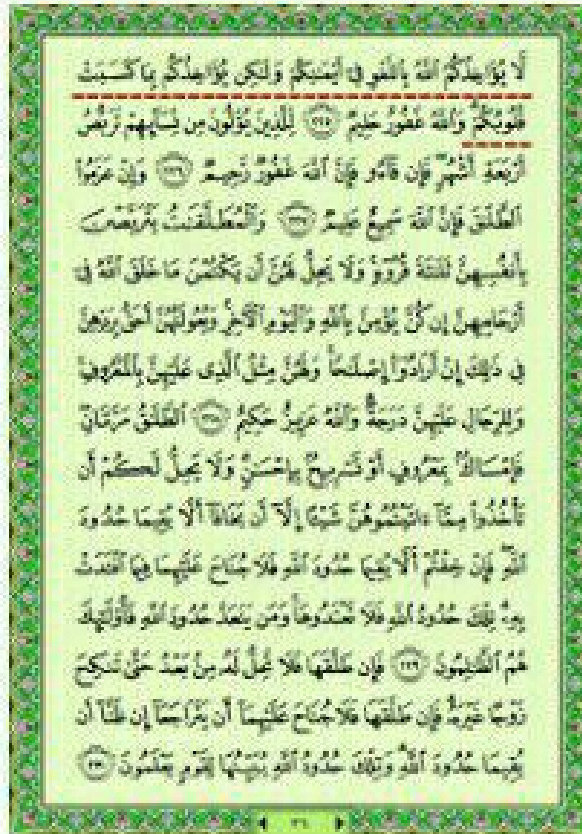 لَّا يُؤَاخِذُكُمُ ٱللَّهُ بِٱللَّغْوِ فِىٓ أَيْمَٰنِكُمْ وَلَٰكِن يُؤَاخِذُكُم بِمَا كَسَبَتْ
قُلُوبُكُمْ ۗ وَٱللَّهُ غَفُورٌ حَلِيمٌ ٢٢٥ لِّلَّذِينَ يُؤْلُونَ مِن نِّسَآئِهِمْ تَرَبُّصُ
أَرْبَعَةِ أَشْهُرٍ ۖ فَإِن فَآءُو فَإِنَّ ٱللَّهَ غَفُورٌ رَّحِيمٌ ٢٢٦ وَإِنْ عَزَمُوا۟
ٱلطَّلَٰقَ فَإِنَّ ٱللَّهَ سَمِيعٌ عَلِيمٌ ٢٢٧ وَٱلْمُطَلَّقَٰتُ يَتَرَبَّصْنَ
بِأَنفُسِهِنَّ ثَلَٰثَةَ قُرُوٓءٍ ۚ وَلَا يَحِلُّ لَهُنَّ أَن يَكْتُمْنَ مَا خَلَقَ ٱللَّهُ فِىٓ
أَرْحَامِهِنَّ إِن كُنَّ يُؤْمِنَّ بِٱللَّهِ وَٱلْيَوْمِ ٱلْءَاخِرِ ۚ وَبُعُولَتُهُنَّ أَحَقُّ بِرَدِّهِنَّ
فِى ذَٰلِكَ إِنْ أَرَادُوٓا۟ إِصْلَٰحًا ۚ وَلَهُنَّ مِثْلُ ٱلَّذِى عَلَيْهِنَّ بِٱلْمَعْرُوفِ ۚ
وَلِلرِّجَالِ عَلَيْهِنَّ دَرَجَةٌ ۗ وَٱللَّهُ عَزِيزٌ حَكِيمٌ ٢٢٨ ٱلطَّلَٰقُ مَرَّتَانِ ۖ
فَإِمْسَاكٌۢ بِمَعْرُوفٍ أَوْ تَسْرِيحٌۢ بِإِحْسَٰنٍ ۗ وَلَا يَحِلُّ لَكُمْ أَن
تَأْخُذُوا۟ مِمَّآ ءَاتَيْتُمُوهُنَّ شَيْـًٔا إِلَّآ أَن يَخَافَآ أَلَّا يُقِيمَا حُدُودَ
ٱللَّهِ ۖ فَإِنْ خِفْتُمْ أَلَّا يُقِيمَا حُدُودَ ٱللَّهِ فَلَا جُنَاحَ عَلَيْهِمَا فِيمَا ٱفْتَدَتْ
بِهِۦ ۗ تِلْكَ حُدُودُ ٱللَّهِ فَلَا تَعْتَدُوهَا ۚ وَمَن يَتَعَدَّ حُدُودَ ٱللَّهِ فَأُو۟لَٰٓئِكَ
هُمُ ٱلظَّٰلِمُونَ ٢٢٩ فَإِن طَلَّقَهَا فَلَا تَحِلُّ لَهُۥ مِنۢ بَعْدُ حَتَّىٰ تَنكِحَ
زَوْجًا غَيْرَهُۥ ۗ فَإِن طَلَّقَهَا فَلَا جُنَاحَ عَلَيْهِمَآ أَن يَتَرَاجَعَآ إِن ظَنَّآ أَن
يُقِيمَا حُدُودَ ٱللَّهِ ۗ وَتِلْكَ حُدُودُ ٱللَّهِ يُبَيِّنُهَا لِقَوْمٍ يَعْلَمُونَ ٢٣٠
٣٦